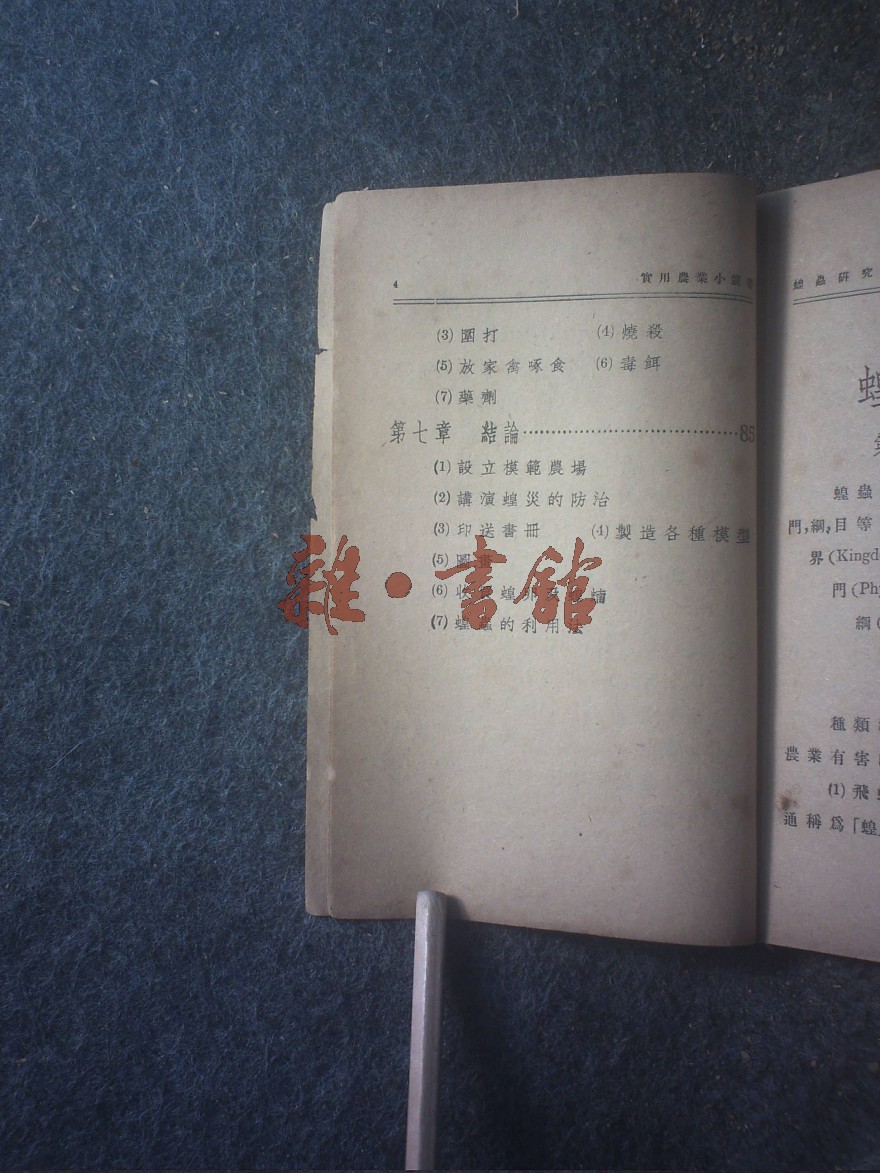 4 實用農業小叢書
(3) 圍打 (4) 燒殺
(5) 放家禽啄食 (6) 毒餌
(7) 藥劑
第七章 結論……………………………85
(1) 設立模範農場
(2) 講演蝗災的防治
(3) 印送書冊 (4) 製造各種模型
(5) 圖畫
(6) 收 蝗卵 蝻
(7) 蝗蟲的利用法
雜·書館
蝗蟲研究
蝗
第
蝗蟲
門,綱,目等
界(Kingd
門(Phy
綱(
種類
農業有害
(1) 飛
通稱爲「蝗